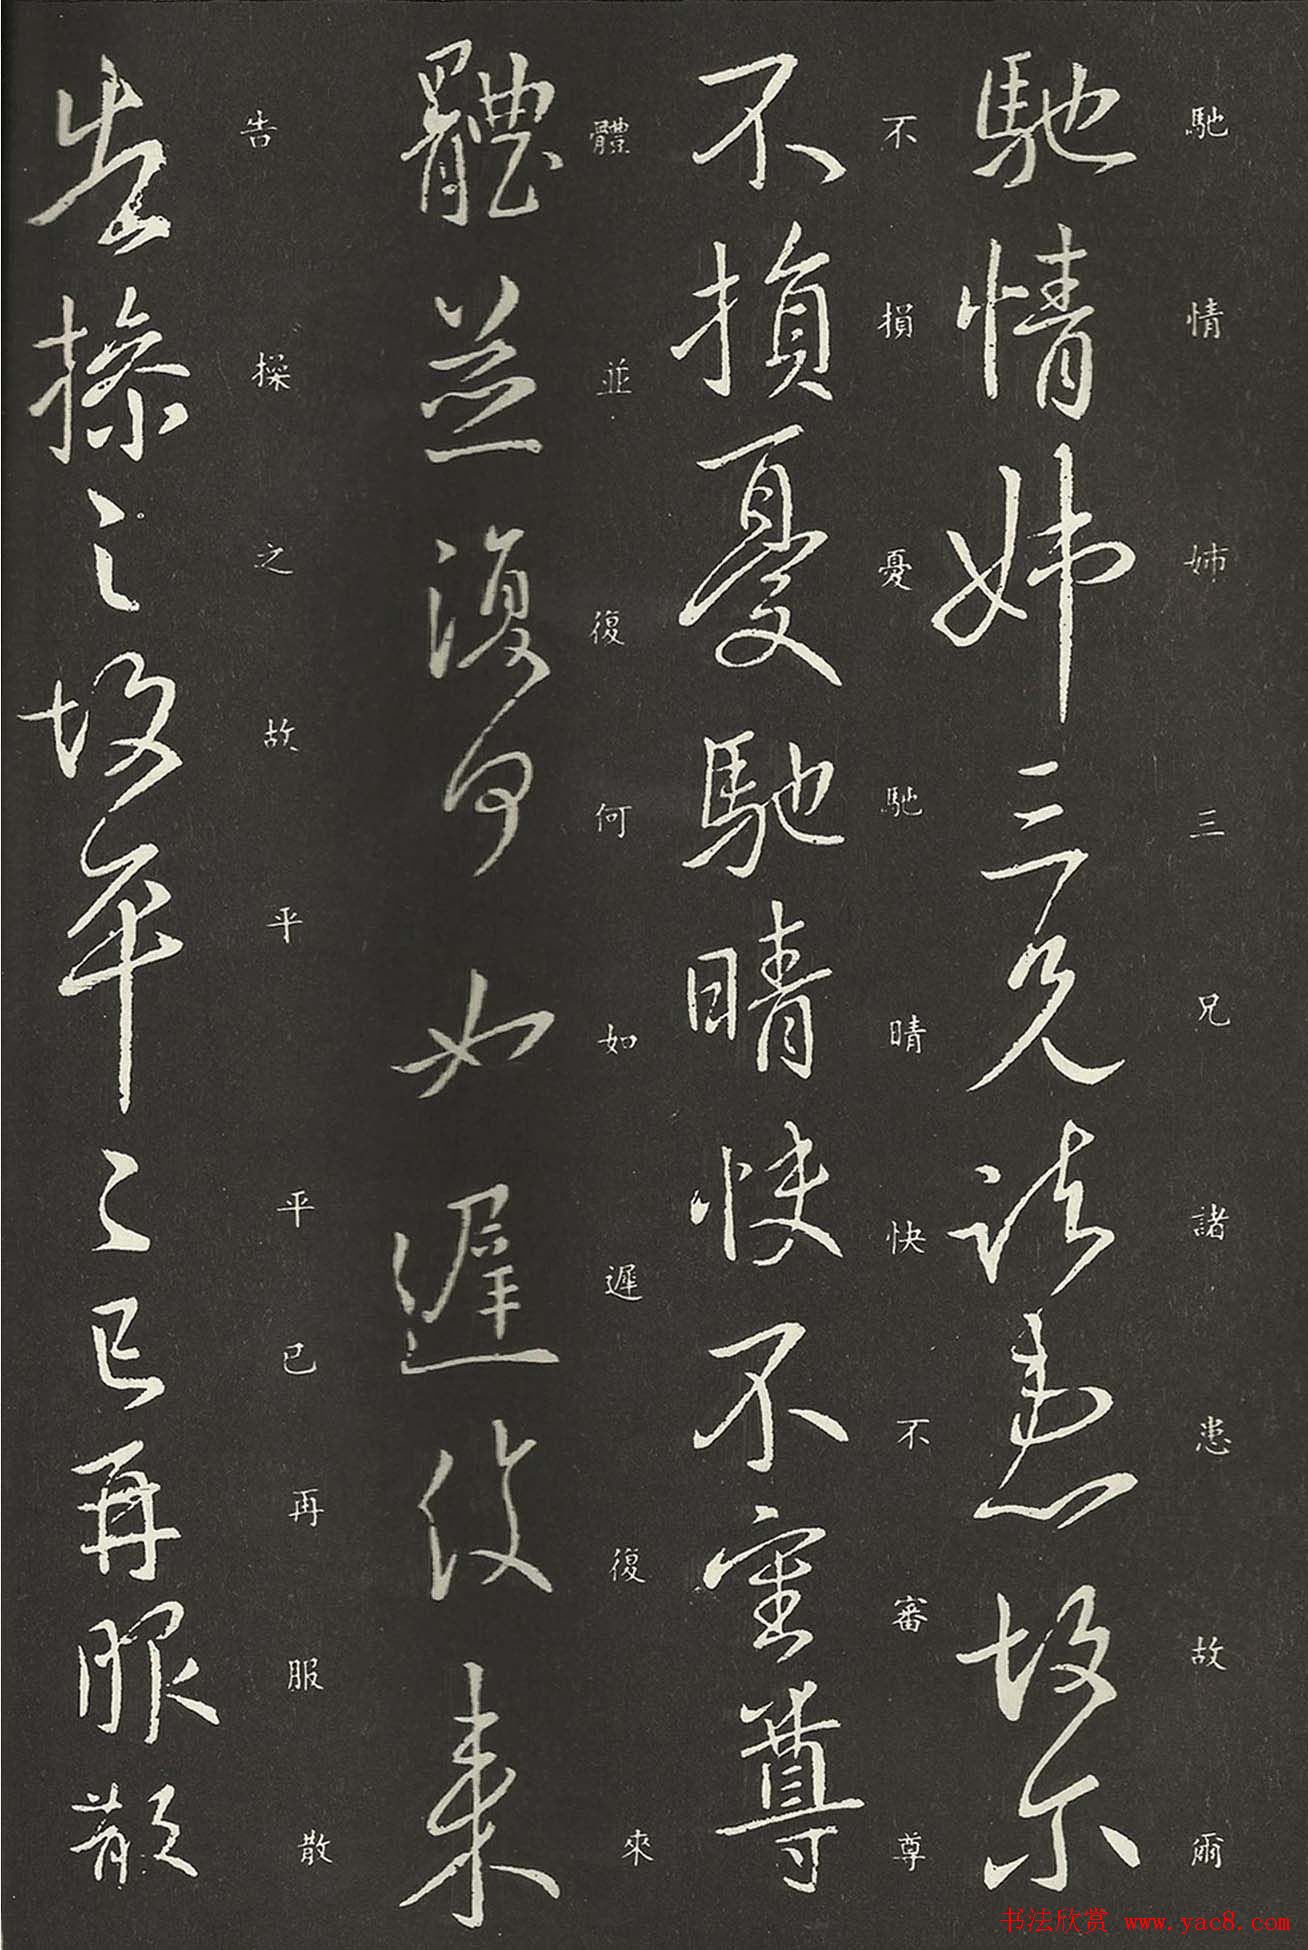 馳情姊三兄諸患故爾
馳情姊三兄諸患故爾
不損憂馳晴快不審尊
不損憂馳晴快不審尊
體並復何如遲復來
體並復何如遲復來
告操之故平平已再服散
告操之故平〻已再服散
书法欣赏 www.yac8.com